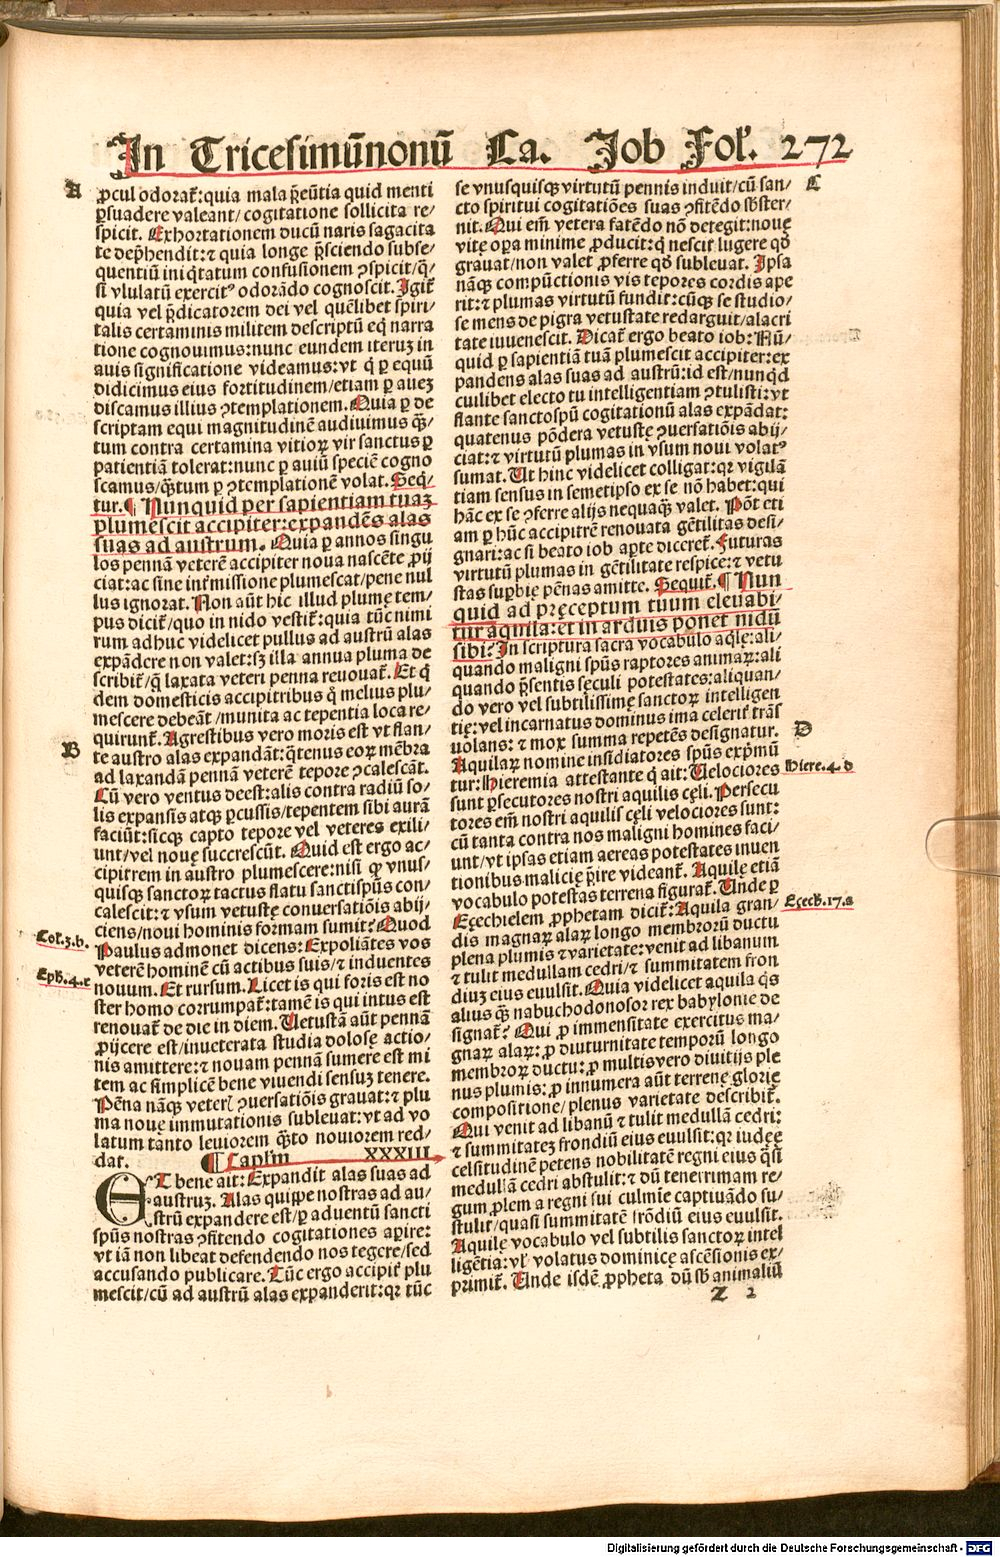 In Tricesimūnonū Ca. Job Fol. 272
A
ꝓcul odorat᷒: quia mala p̄ſentia quid menti
ꝑſuadere valeant/ cogitatione ſollicita re/
ſpicit. Exhortationem ducū naris ſagacita
te dep̄hendit: ⁊ quia longe p̄ſciendo ſubſe/
quentiū iniq̇tatum confuſionem ꝯſpicit/ q̄/
ſi vlulatū exercitꝰ odorādo cognoſcit. Igit᷒
quia vel p̄dicatorem dei vel quēlibet ſpiri/
talis certaminis militem deſcriptū eq̇ narra
tione cognouimus: nunc eundem iteruꝫ in
auis ſignificatione videamus: vt q̇ ꝑ equū
didicimus eius fortitudinem/ etiam ꝑ aueꝫ
diſcamus illius ꝯtemplationem. Quia ꝑ de
ſcriptam equi magnitudinē audiuimus q̄ꝫ/
tum contra certamina vitioꝝ vir ſanctus ꝑ
patientiā tolerat: nunc ꝑ auiū ſpeciē cogno
ſcamus/ q̄ꝫtum ꝑ ꝯtemplationē volat. Seq̇/
tur. ¶ Nunquid per ſapientiam tuaꝫ
plumeſcit accipiter: expandēs alas
ſuas ad auſtrum. Quia ꝑ annos ſingu
los pennā veterē accipiter noua naſcēte ꝓij
ciat: ac ſine int᷒miſſione plumeſcat/ pene nul
lus ignorat. Non aūt hic illud plumę tem/
pus dicit᷒/ quo in nido veſtit᷒: quia tūc nimi
rum adhuc videlicet pullus ad auſtrū alas
expādere non valet: ſꝫ illa annua pluma de
ſcribit᷒/ q̄ laxata veteri penna reuouat᷒. Et q̇
dem domeſticis accipitribus q̇ melius plu/
meſcere debeāt/ munita ac tepentia loca re/
quirunt᷒. Agreſtibus vero moris eſt vt flan/
B
te auſtro alas expandāt: q̄tenus eoꝝ mēbra
ad laxandā pennā veterē tepore ꝯcaleſcāt.
Cū vero ventus deeſt: alis contra radiū ſo/
lis expanſis atqꝫ ꝑcuſſis/ tepentem ſibi aurā
faciūt: ſicqꝫ capto tepore vel veteres exili/
unt/ vel nouę ſuccreſcūt. Quid eſt ergo ac/
cipitrem in auſtro plumeſcere: niſi ꝙ vnuſ/
quiſqꝫ ſanctoꝝ tactus flatu ſanctiſpūs con/
caleſcit: ⁊ vſum vetuſtę conuerſatiōis abij/
ciens/ noui hominis formam ſumit? Quod
Col. 3. b.
Paulus admonet dicens: Expoliātes vos
veterē hominē cū actibus ſuis/ ⁊ induentes
Eph. 4. e
nouum. Et rurſum. Licet is qui foris eſt no
ſter homo corrumpat᷒: tamē is qui intus eſt
renouat᷒ de die in diem. Uetuſtā aūt pennā
ꝓijcere eſt/ inueterata ſtudia doloſę actio/
nis amittere: ⁊ nouam pennā ſumere eſt mi
tem ac ſimplicē bene viuendi ſenſuꝫ tenere.
Pēna nāqꝫ veteris ꝯuerſatiōis grauat: ⁊ plu
ma nouę immutationis ſubleuat: vt ad vo
latum tanto leuiorem q̄ꝫto nouiorem red/
dat. ¶ Caplm XXXIII.
ET bene ait: Expandit alas ſuas ad
auſtruꝫ. Alas quippe noſtras ad au/
ſtrū expandere eſt/ ꝑ aduentū ſancti
ſpūs noſtras ꝯfitendo cogitationes aꝑire:
vt iā non libeat defendendo nos tegere/ ſed
accuſando publicare. Tūc ergo accipit᷒ plu
meſcit/ cū ad auſtrū alas expanderit: qꝛ tūc
C
ſe vnuſquiſqꝫ virtutū pennis induit/ cū ſan/
cto ſpiritui cogitatiōes ſuas ꝯfitēdo ſb̄ſter/
nit. Qui em̄ vetera fatēdo nō detegit: nouę
vitę oꝑa minime ꝓducit: q̇ neſcit lugere qd̄
grauat/ non valet ꝓferre qd̄ ſubleuat. Ipſa
nāqꝫ compūctionis vis tepores cordis ape
rit: ⁊ plumas virtutū fundit: cūqꝫ ſe ſtudio/
ſe mens de pigra vetuſtate redarguit/ alacri
tate iuueneſcit. Dicat᷒ ergo beato iob: Nū/
quid ꝑ ſapientiā tuā plumeſcit accipiter: ex
pandens alas ſuas ad auſtrū: id eſt/ nunq̇d
cuilibet electo tu intelligentiam ꝯtuliſti: vt
flante ſanctoſpū cogitationū alas expādat:
quatenus pōdera vetuſtę ꝯuerſatiōis abij/
ciat: ⁊ virtutū plumas in vſum noui volatꝰ
ſumat. Ut hinc videlicet colligat: qꝛ vigilā
tiam ſenſus in ſemetipſo ex ſe nō habet: qui
hāc ex ſe ꝯferre alijs nequaqꝫ valet. Pōt eti
am ꝑ hūc accipitrē renouata gētilitas deſi/
gnari: ac ſi beato iob aꝑte diceret᷒. Futuras
virtutū plumas in gētilitate reſpice: ⁊ vetu
ſtas ſuꝑbię pēnas amitte. Sequit᷒. ¶ Nun
quid ad pręceptum tuum eleuabi/
tur aquila: et in arduis ponet nidū
ſibi? In ſcriptura ſacra vocabulo aq̇lę: ali/
quando maligni ſpūs raptores animaꝝ: ali
quando p̄ſentis ſęculi poteſtates: aliquan/
do vero vel ſubtiliſſimę ſanctoꝝ intelligen
tię: vel incarnatus dominus ima celerit᷒ trāſ
D
uolans: ⁊ mox ſumma repetēs deſignatur.
Aquilaꝝ nomine inſidiatores ſpūs exp̄mū
Hiere. 4. d
tur: Hieremia atteſtante q̇ ait: Uelociores
ſunt ꝑſecutores noſtri aquilis cęli. Perſecu
tores em̄ noſtri aquilis cęli velociores ſunt:
cū tanta contra nos maligni homines faci/
unt/ vt ipſas etiam aereas poteſtates inuen
tionibus malicię p̄ire videant᷒. Aquilę etiā
vocabulo poteſtas terrena figurat᷒. Unde ꝑ
Ezech. 17. a
Ezechielem ꝓphetam dicit᷒: Aquila gran/
dis magnaꝝ alaꝝ longo membrorū ductu
plena plumis ⁊ varietate: venit ad libanum
⁊ tulit medullam cedri/ ⁊ ſummitatem fron
diuꝫ eius euulſit. Quia videlicet aquila q̇s
alius q̄ꝫ nabuchodonoſor rex babylonię de
ſignat᷒? Qui ꝓ immenſitate exercitus ma/
gnaꝝ alaꝝ: ꝓ diuturnitate temporū longo
membroꝝ ductu: ꝓ multis vero diuitijs ple
nus plumis: ꝓ innumera aūt terrenę glorię
compoſitione/ plenus varietate deſcribit᷒.
Qui venit ad libanū ⁊ tulit medullā cedri:
⁊ ſummitateꝫ frondiū eius euulſit: qꝛ iudęę
celſitudinē petens nobilitatē regni eius q̄ſi
medullā cedri abſtulit: ⁊ dū tenerrimam re/
gum plem a regni ſui culmīe captiuādo ſu/
ſtulit/ quaſi ſummitatē frōdiū eius euulſit.
Aquilę vocabulo vel ſubtilis ſanctoꝝ intel
ligētia: vl᷒ volatus dominicę aſcēſionis ex/
primit᷒. Unde iſdē ꝓpheta dū ſb̄ animaliū
Z 2
Digitalisierung gefördert durch die Deutsche Forschungsgemeinschaft - DFG